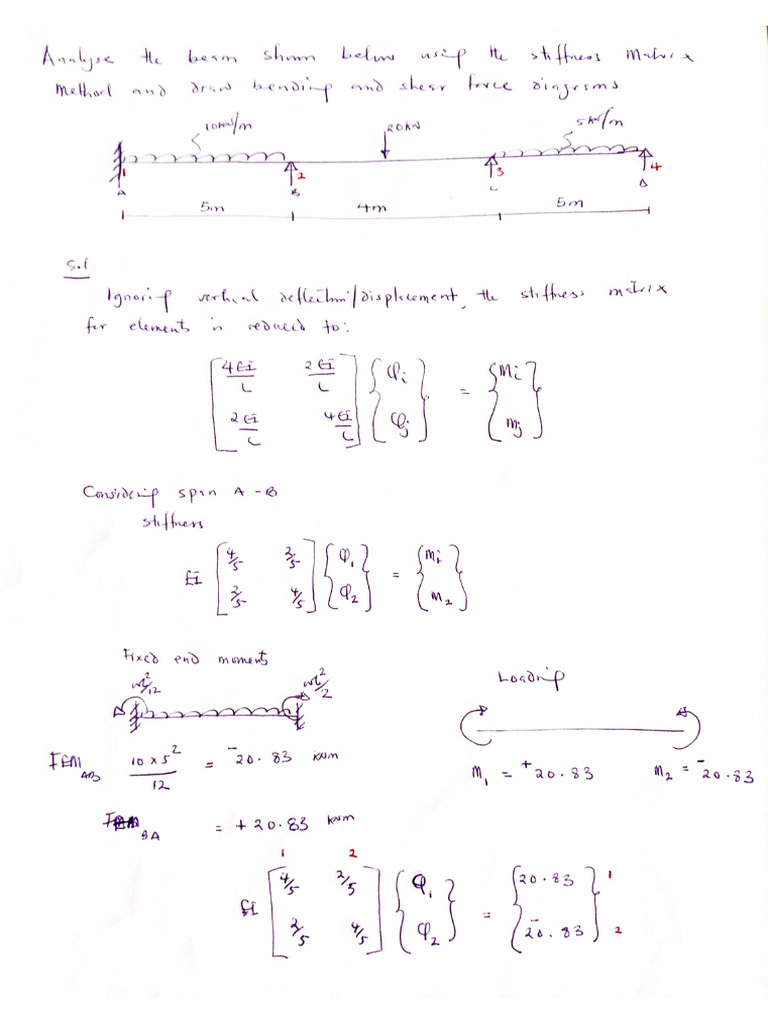 Analyse the beam shown below using the stiffness matrix
method and draw bending and shear force diagrams
10kN/m 20kN 5kN/m
1 2 3 4
A B C D
5m 4m 5m
Sol.
Ignoring vertical deflection/displacement, the stiffness matrix
for elements is reduced to:
[4EI/L 2EI/L] {φi} = {Mi}
[2EI/L 4EI/L] {φj} {Mj}
Considering span A-B
stiffness
EI [4/5 2/5] {φ1} = {M1}
[2/5 4/5] {φ2} {M2}
Fixed end moments
wl²/12 wl²/2
Loading
FEM AB 10×5²/12 = ⁻20.83 kNm
M1 = ⁺20.83 M2 = ⁻20.83
BA = +20.83 kNm
1 2
EI [4/5 2/5] {φ1} = {20.83} 1
[2/5 4/5] {φ2} {⁻20.83} 2